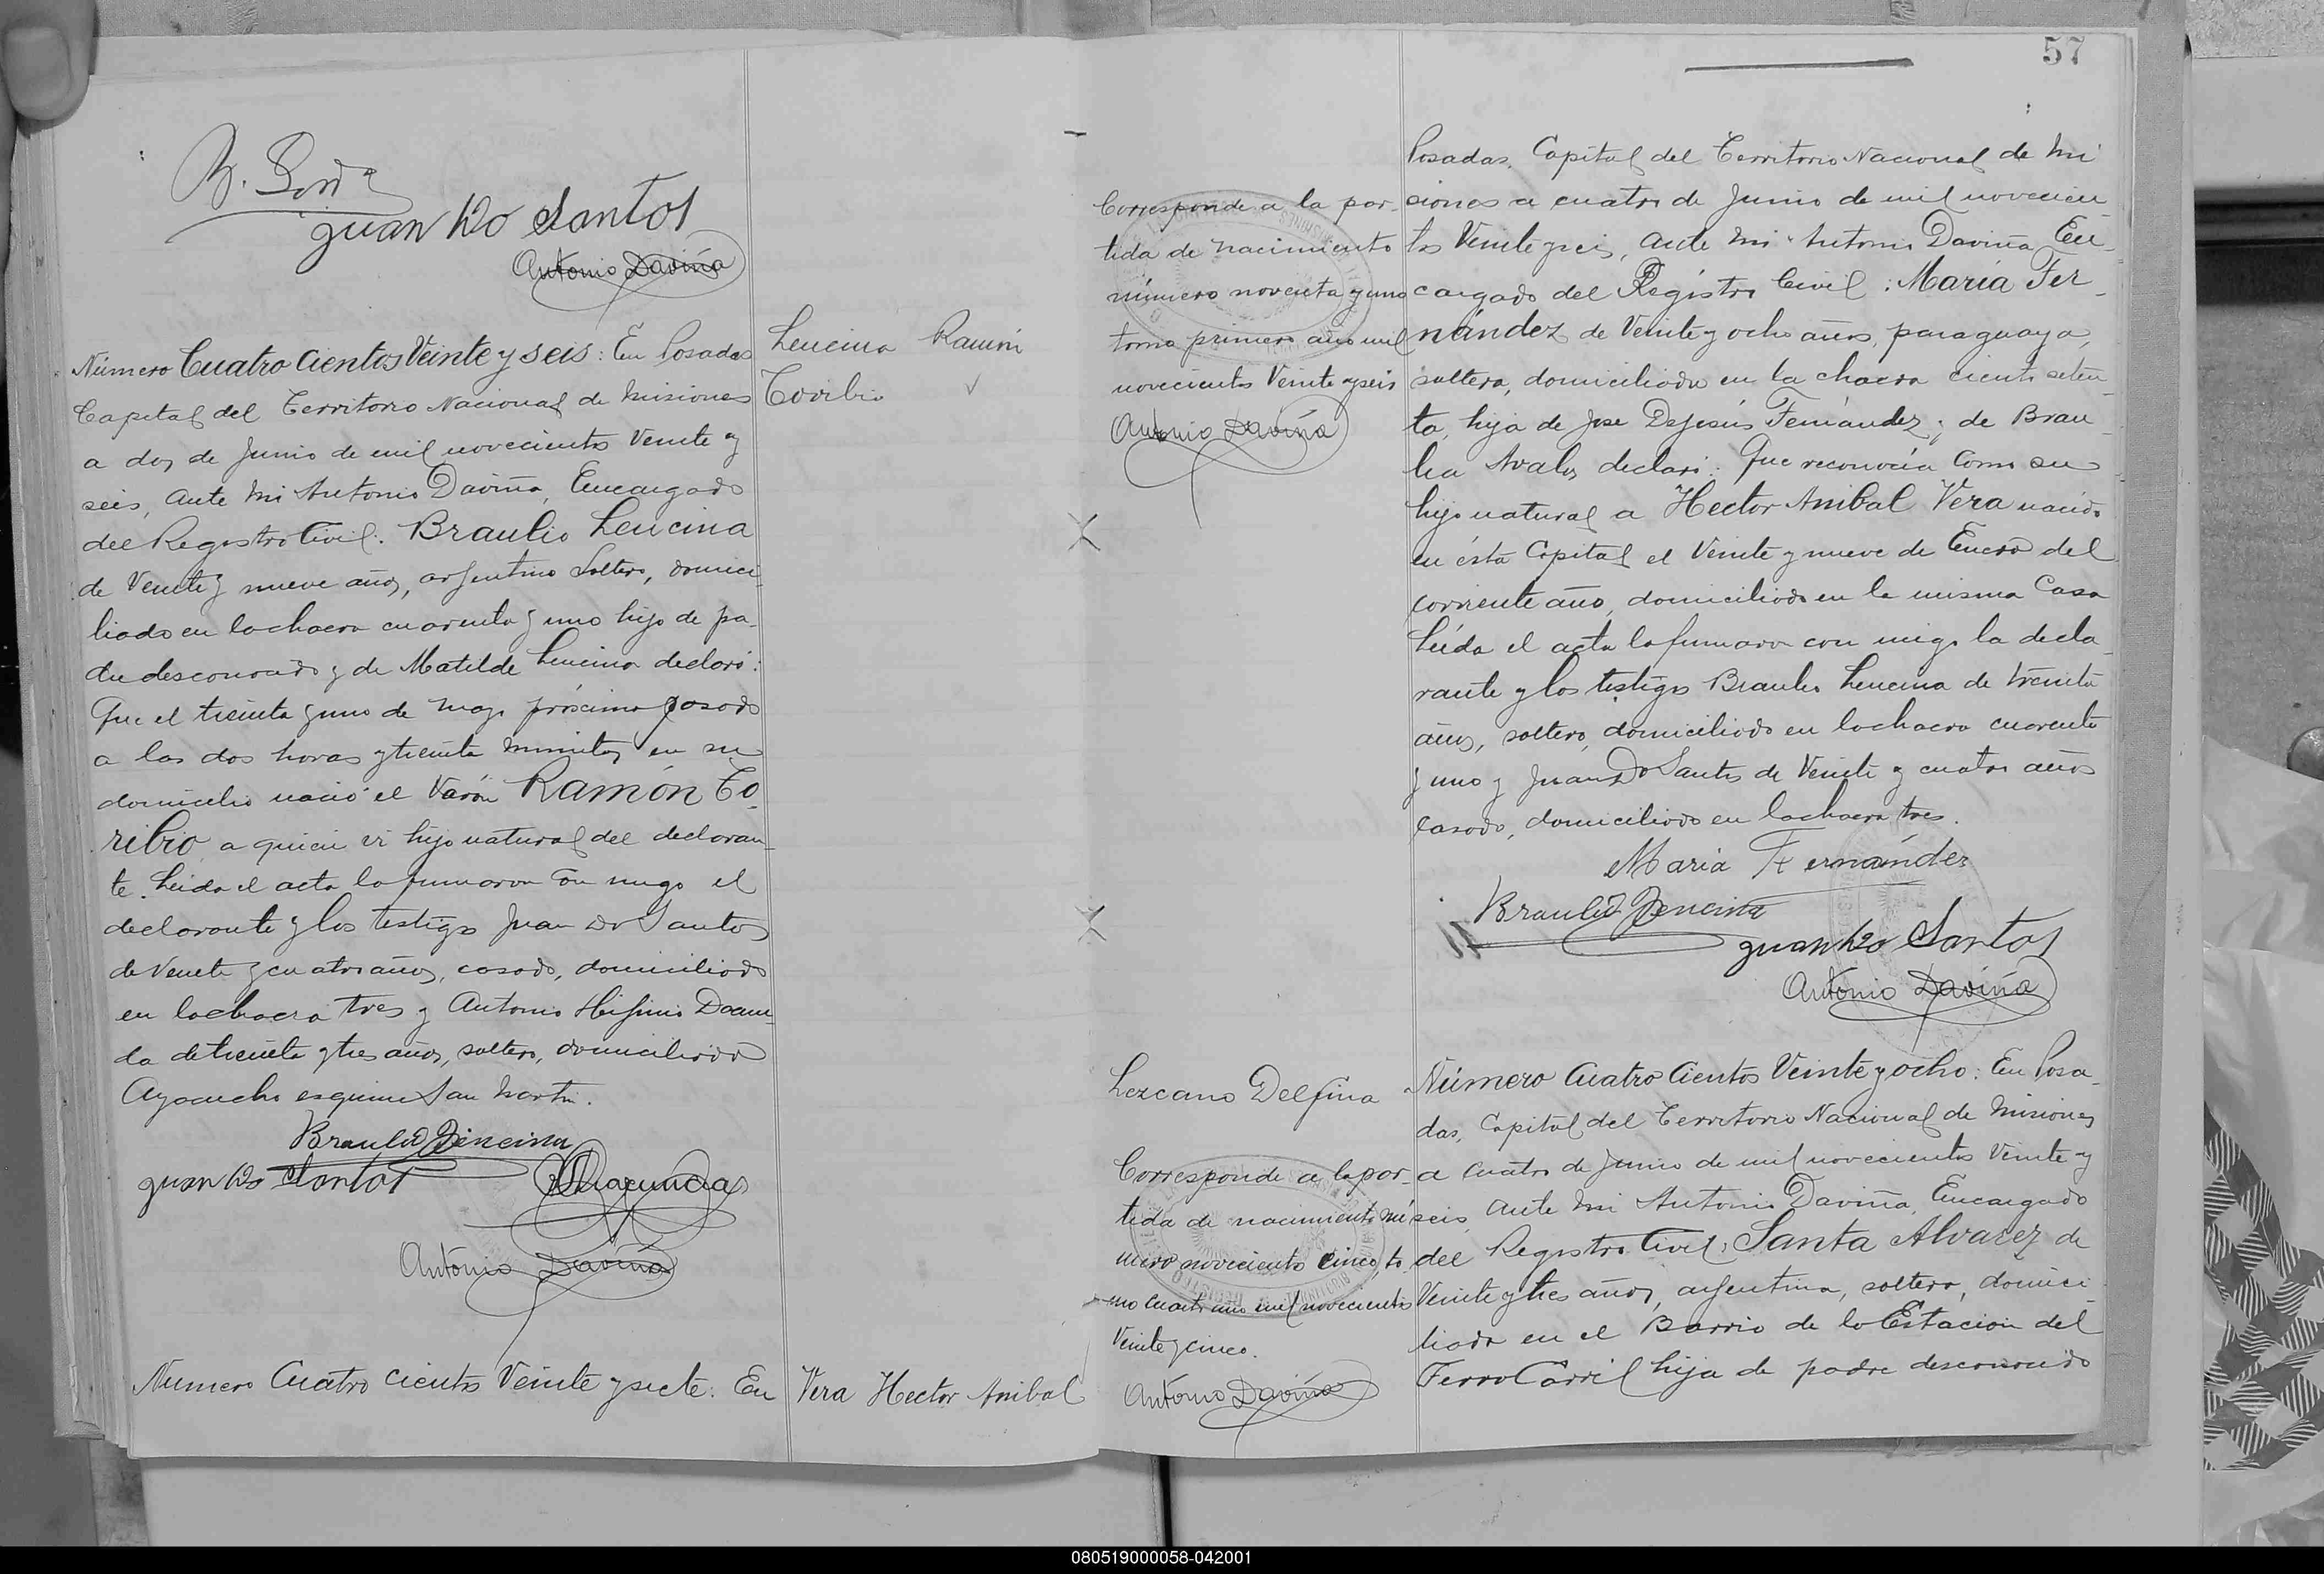 57
B.
Juan Do Santos
Antonio Daviña
Número Cuatro cientos Veinte y seis: En Posadas
Capital del Territorio Nacional de Misiones
a dos de Junio de mil novecientos Veinte y
seis, ante mi Antonio Daviña, Encargado
del Registro Civil: Braulio Lencina
de Veinte y nueve años, argentino Soltero, domici-
liado en la chacra cuarenta y uno hijo de pa-
dre desconocido y de Matilde Lencina declaró:
Que el treinta y uno de Mayo próximo pasado
a las dos horas y treinta minutos en su
domicilio nació el Varón Ramón To-
ribio, a quien es hijo natural del declaran-
te. Leida el acta la firmaron con migo el
declarante y los testigos Juan Do Santos
de Veinte y cuatro años, casado, domiciliado
en la chacra tres y Antonio Higinio
da de treinta y tres años, soltero, domiciliado
Ayacucho esquina San Martin.
Braulio Lencina
Juan Do Santos
Antonio Daviña
Lencina Ramón
Toribio
Número Cuatro cientos Veinte y siete: En
Vera Hector Anibal
Corresponde a la par-
tida de nacimiento
número noventa y uno
tomo primero año mil
novecientos Veinte y seis
Antonio Daviña
Posadas, Capital del Territorio Nacional de Mi
siones a cuatro de Junio de mil novecien-
tos Veinte y seis, ante mi Antonio Daviña En-
cargado del Registro Civil: María Fer-
nández de Veinte y ocho años, paraguaya,
soltera, domiciliada en la chacra ciento seten-
ta, hija de Jose Dejesús Fernandez y de Brau-
lia Avalos declaró: Que reconocía como su
hijo natural a Hector Anibal Vera nacido
en ésta Capital el Veinte y nueve de Enero del
corriente año, domiciliado en la misma Casa
Leída el acta la firmaron con migo la decla-
rante y los testigos Braulio Lencina de treinta
años, soltero, domiciliado en la chacra cuarenta
y uno y Juan Do Santos de Veinte y cuatro años
casado, domiciliado en la chacra tres.
Maria Fernández
Braulio Lencina
Juan Do Santos
Antonio Daviña
Lezcano Delfina
Corresponde a la par-
tida de nacimiento nú
mero novecientos cinco, to-
mo cuarto año mil novecientos
Veinte y cinco.
Antonio Daviña
Número Cuatro Cientos Veinte y ocho: En Posa-
das, Capital del Territorio Nacional de Misiones
a cuatro de Junio de mil novecientos Veinte y
seis, ante mi Antonio Daviña, Encargado
del Registro Civil; Santa Alvarez de
Veinte y tres años, argentina, soltera, domici-
liada en el Barrio de la Estacion del
Ferro Carril hija de padre desconocido
080519000058-042001